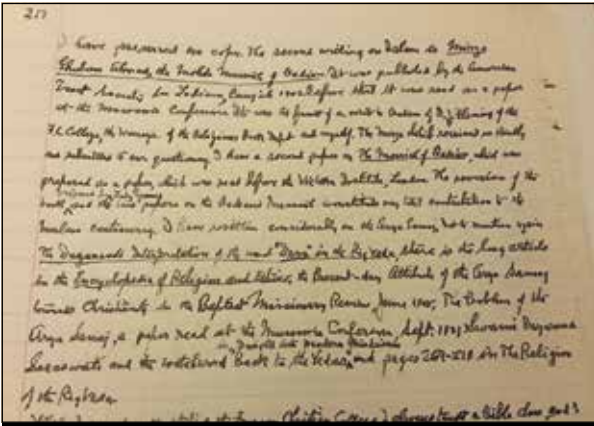 217
I have preserved one copy. The second writing on Islam is Mirza
Ghulam Ahmad, the Mahdi Messiah of Qadian. It was published by the American
Tract Society in Ludiana, Punjab 1902. Before that it was read as a paper
at the Mussoorie Conference. It was the fruit of a visit to Qadian of D. J. Fleming of the
F. C. College, the manager of the Religious Book Dept and myself. The Mirza Sahib received us kindly
and submitted to our questioning. I have a second paper on The Messiah of Qadian, which was
prepared as a paper, which was read before the Victoria Institute, London. The revision of the
and the two papers on the Qadiani Messiah constitute my total contribution to the
Muslim controversy. I have written considerably on the Arya Samaj. Not to mention again
The Dayananda Interpretation of the word "Deva" in the Rig Veda, there is the long article
in the Encyclopedia of Religion and Ethics, the Present-day Attitude of the Arya Samaj
towards Christianity in the Baptist Missionary Review, June 1905, The Problem of the
Arya Samaj, a paper read at the Mussoorie Conference, Sept. Swami Dayanand
Saraswati and the watchword "Back to the Vedas", and pages in The Religion
of the Rig Veda.
Christian College I always taught a Bible class, and I